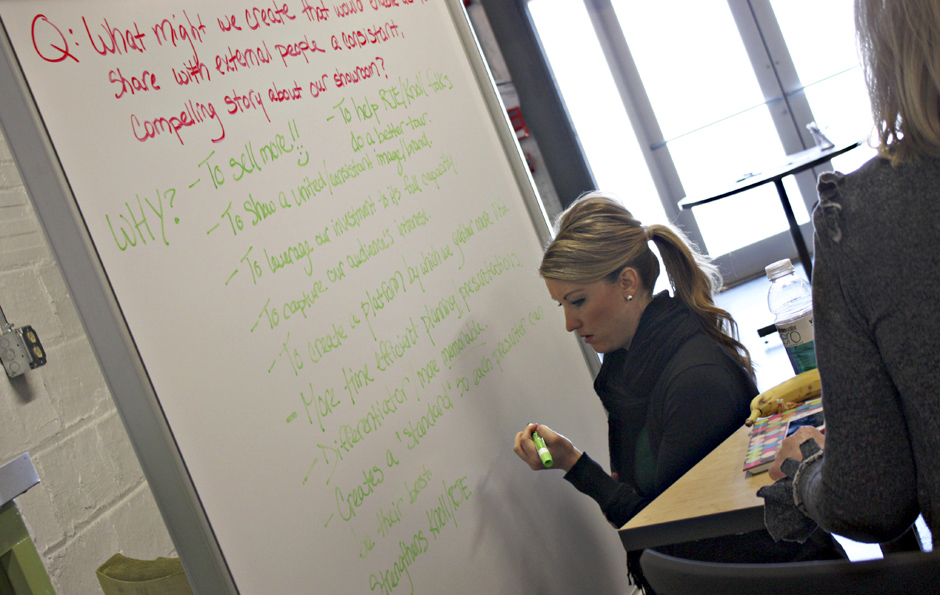 Q: What might we create that would enable us to
share with external people a consistant,
compelling story about our showroom?
WHY?
- To sell more!!
- To help RITE/Knoll folks
do a better tour.
- To show a united/consistant image/brand.
- To leverage our investment to its full capacity
- To capture our audience's interest.
- To create a platform/by which we gather more
- More time efficient planning presentations
- Differentiator; more memorable.
- Creates a "standard" so each presenter can
be their best
- strengthens Knoll/RITE